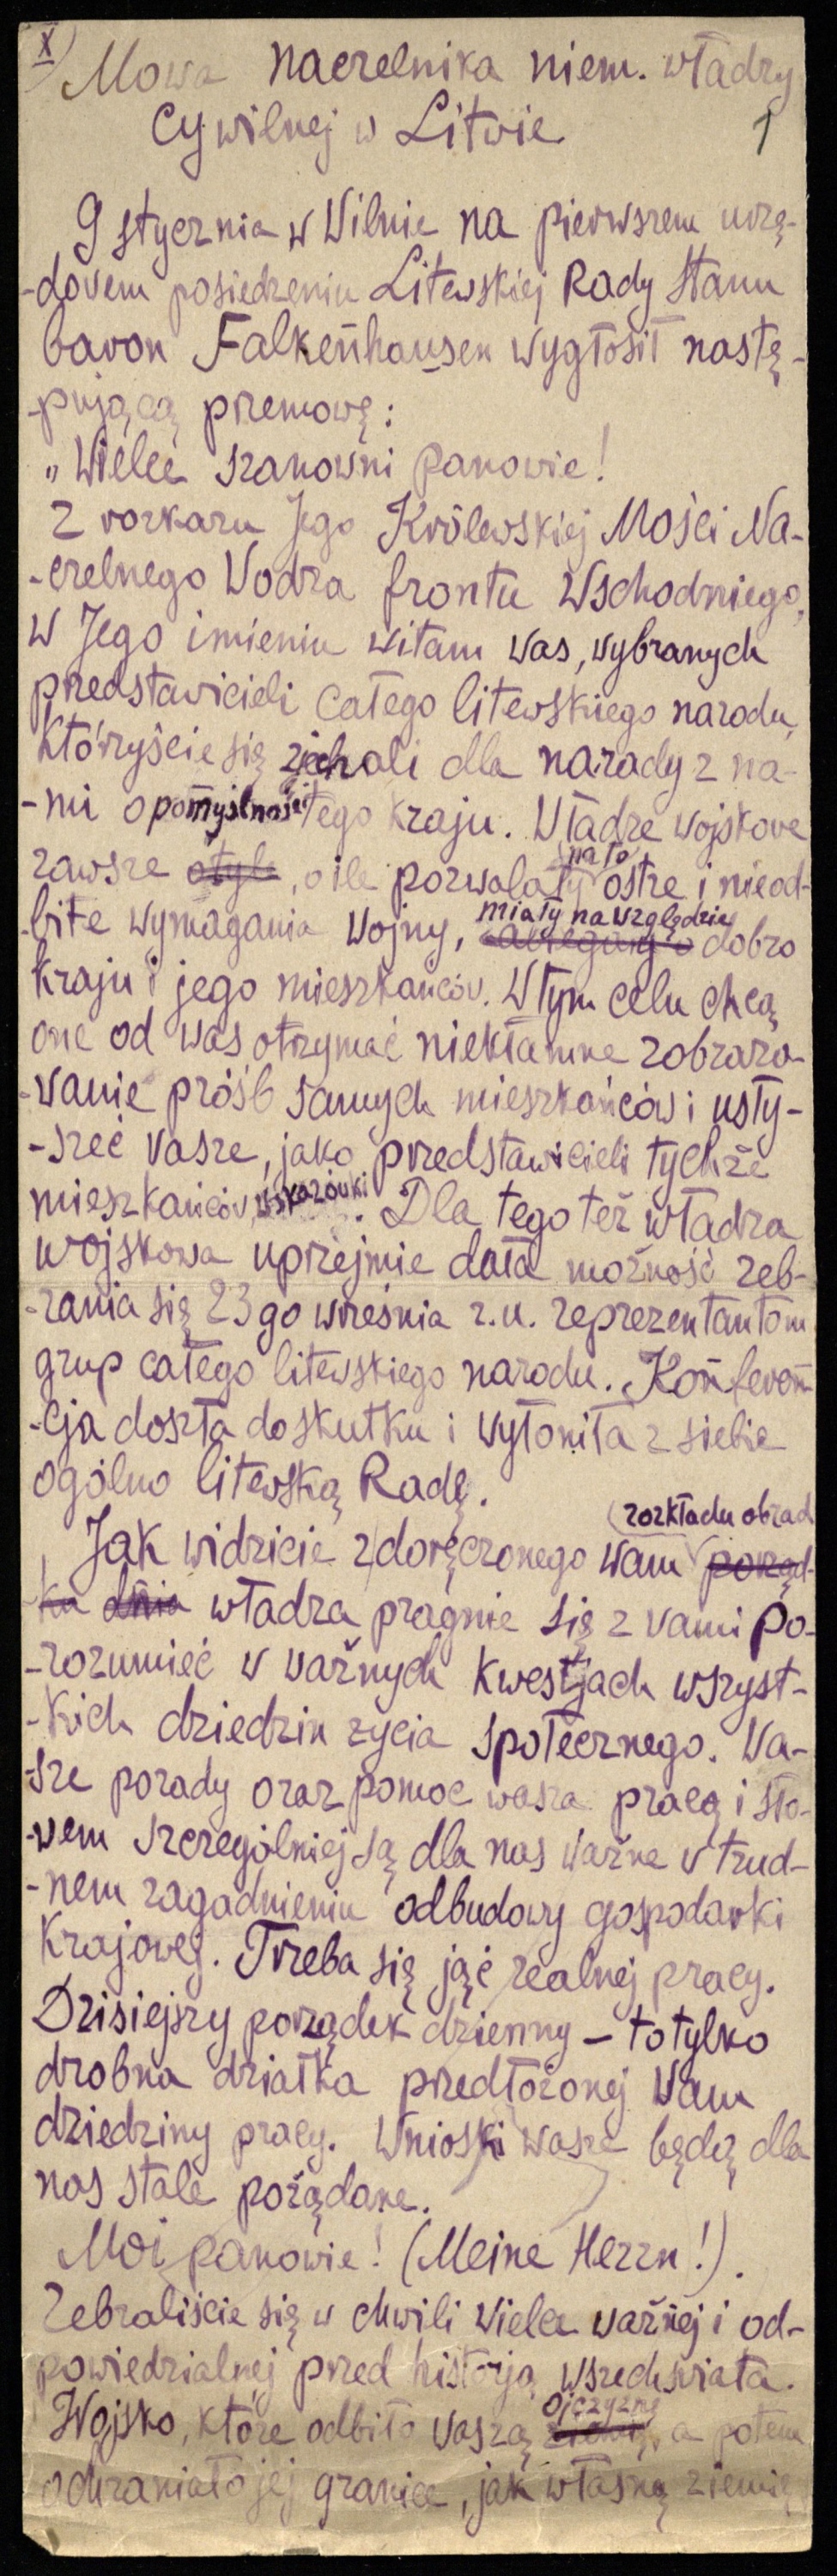 X) Mowa naczelnika niem. władzy
cywilnej w Litwie
1
9 stycznia w Wilnie na pierwszem urzę-
-dowem posiedzeniu Litewskiej Rady Stanu
baron Falkenhausen wygłosił nastę-
-pującą przemowę:
„Wielce szanowni panowie!
Z rozkazu Jego Królewskiej Mości Na-
-czelnego Wodza frontu Wschodniego,
w Jego imieniu witam was, wybranych
przedstawicieli całego litewskiego narodu,
którzyście się zjechali dla narady z na-
-mi o pomyślności tego kraju. Władze wojskowe
zawsze o tyle, o ile pozwalały na to ostre i nieod-
-bite wymagania wojny, miały na względzie dobro
kraju i jego mieszkańców. W tym celu chcą
one od was otrzymać niekłamne zobrazo-
-wanie próśb samych mieszkańców i usły-
-szeć wasze, jako przedstawicieli tychże
mieszkańców, wskazówki. Dla tego też władza
wojskowa uprzejmie dała możność zeb-
-rania się 23go wreśnia r.u. reprezentantom
grup całego litewskiego narodu. Konferen-
-cja doszła do skutku i wyłoniła z siebie
ogólno litewską Radę.
Jak widzicie z doręczonego wam rozkładu obrad porząd-
-ku dnia władza pragnie się z wami po-
-rozumieć w ważnych kwestjach wszyst-
-kich dziedzin życia społecznego. Wa-
-sze porady oraz pomoc wasza pracą i sło-
-wem szczególniej są dla nas ważne w trud-
-nem zagadnieniu odbudowy gospodarki
krajowej. Trzeba się jąć realnej pracy.
Dzisiejszy porządek dzienny – to tylko
drobna działka przedłożonej Wam
dziedziny pracy. Wnioski wasze będą dla
nas stale pożądane.
Moi panowie! (Meine Herrn!).
Zebraliście się w chwili wielce ważnej i od-
powiedzialnej przed historją wszechświata.
Wojsko, które odbiło waszą ojczyznę, a potem
ochraniało jej granice, jak własną ziemię